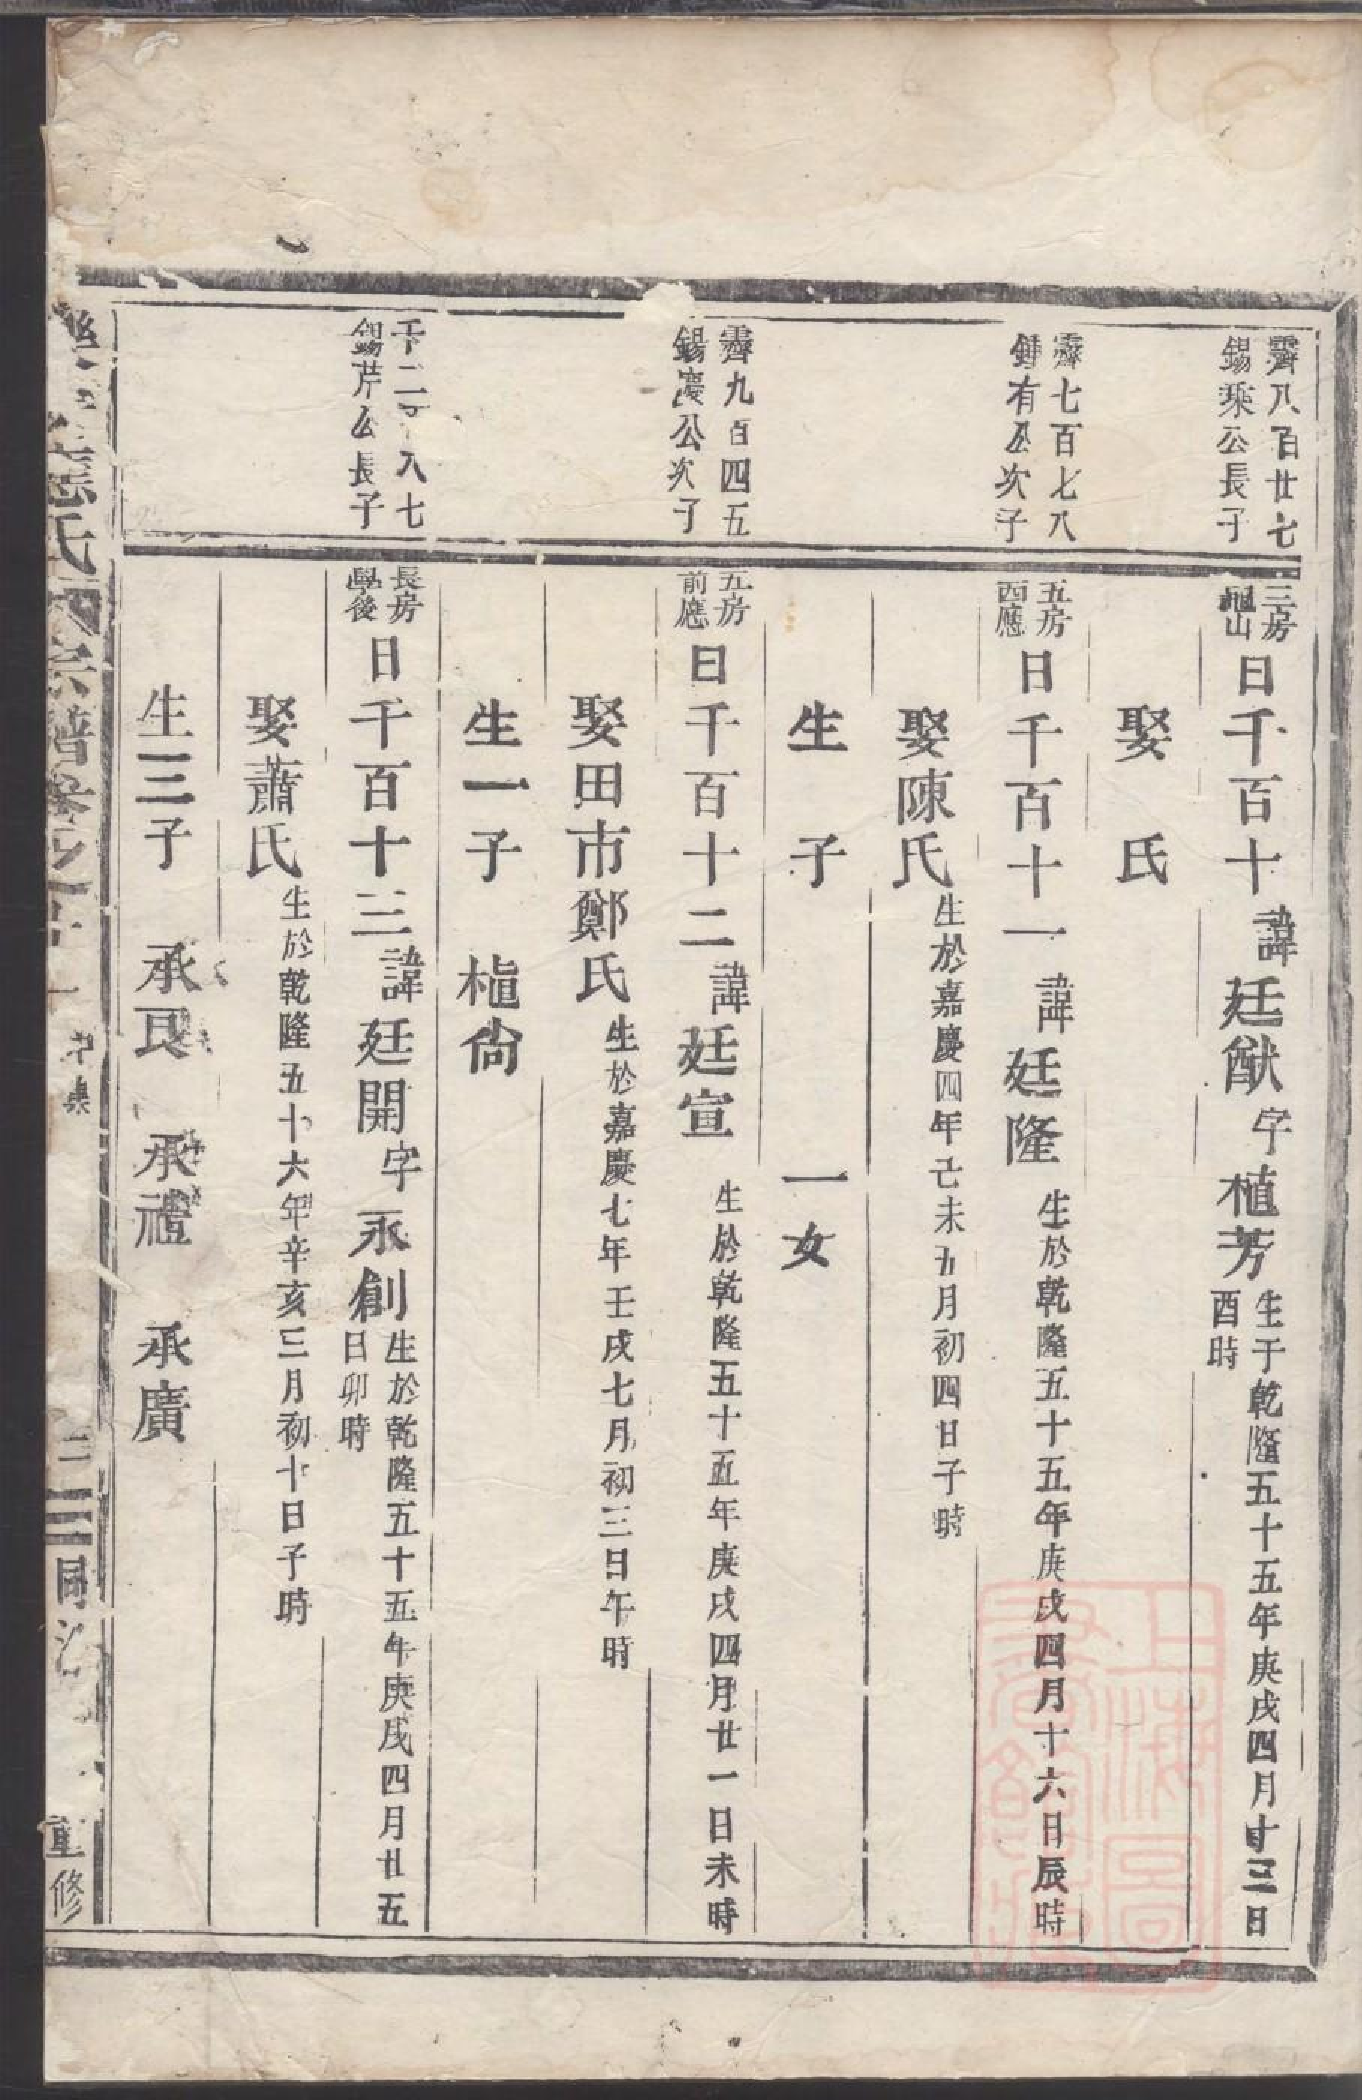 霽八百廿七
錫乘公長子
三房
龜山
日千百十諱廷猷字植芳生于乾隆五十五年庚戌四月十三日
酉時
娶 氏
霽七百七八
鍾有公次子
五房
西應
日千百十一諱廷隆生於乾隆五十五年庚戌四月十六日辰時
娶陳氏生於嘉慶四年己未五月初四日子時
生 子 一女
霽九百四五
錫慶公次子
五房
前應
日千百十二諱廷宣生於乾隆五十五年庚戌四月廿一日未時
娶田市鄭氏生於嘉慶七年壬戌七月初三日午時
生一子 楦尙
千二 八七
錫芹公長子
長房
學後
日千百十三諱廷開字永創生於乾隆五十五年庚戌四月廿五
日卯時
娶蕭氏生於乾隆五十六年辛亥三月初十日子時
生三子 承艮 承禮 承廣
應氏宗譜卷之
重修